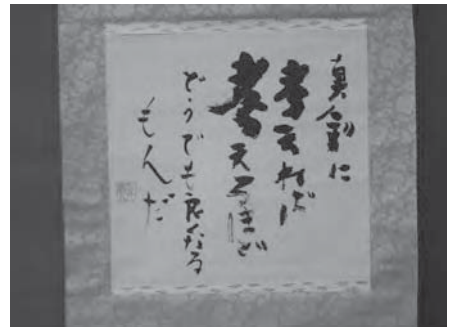 真剣に
考えれば
考えるほど
どうでも良くなる
もんだ